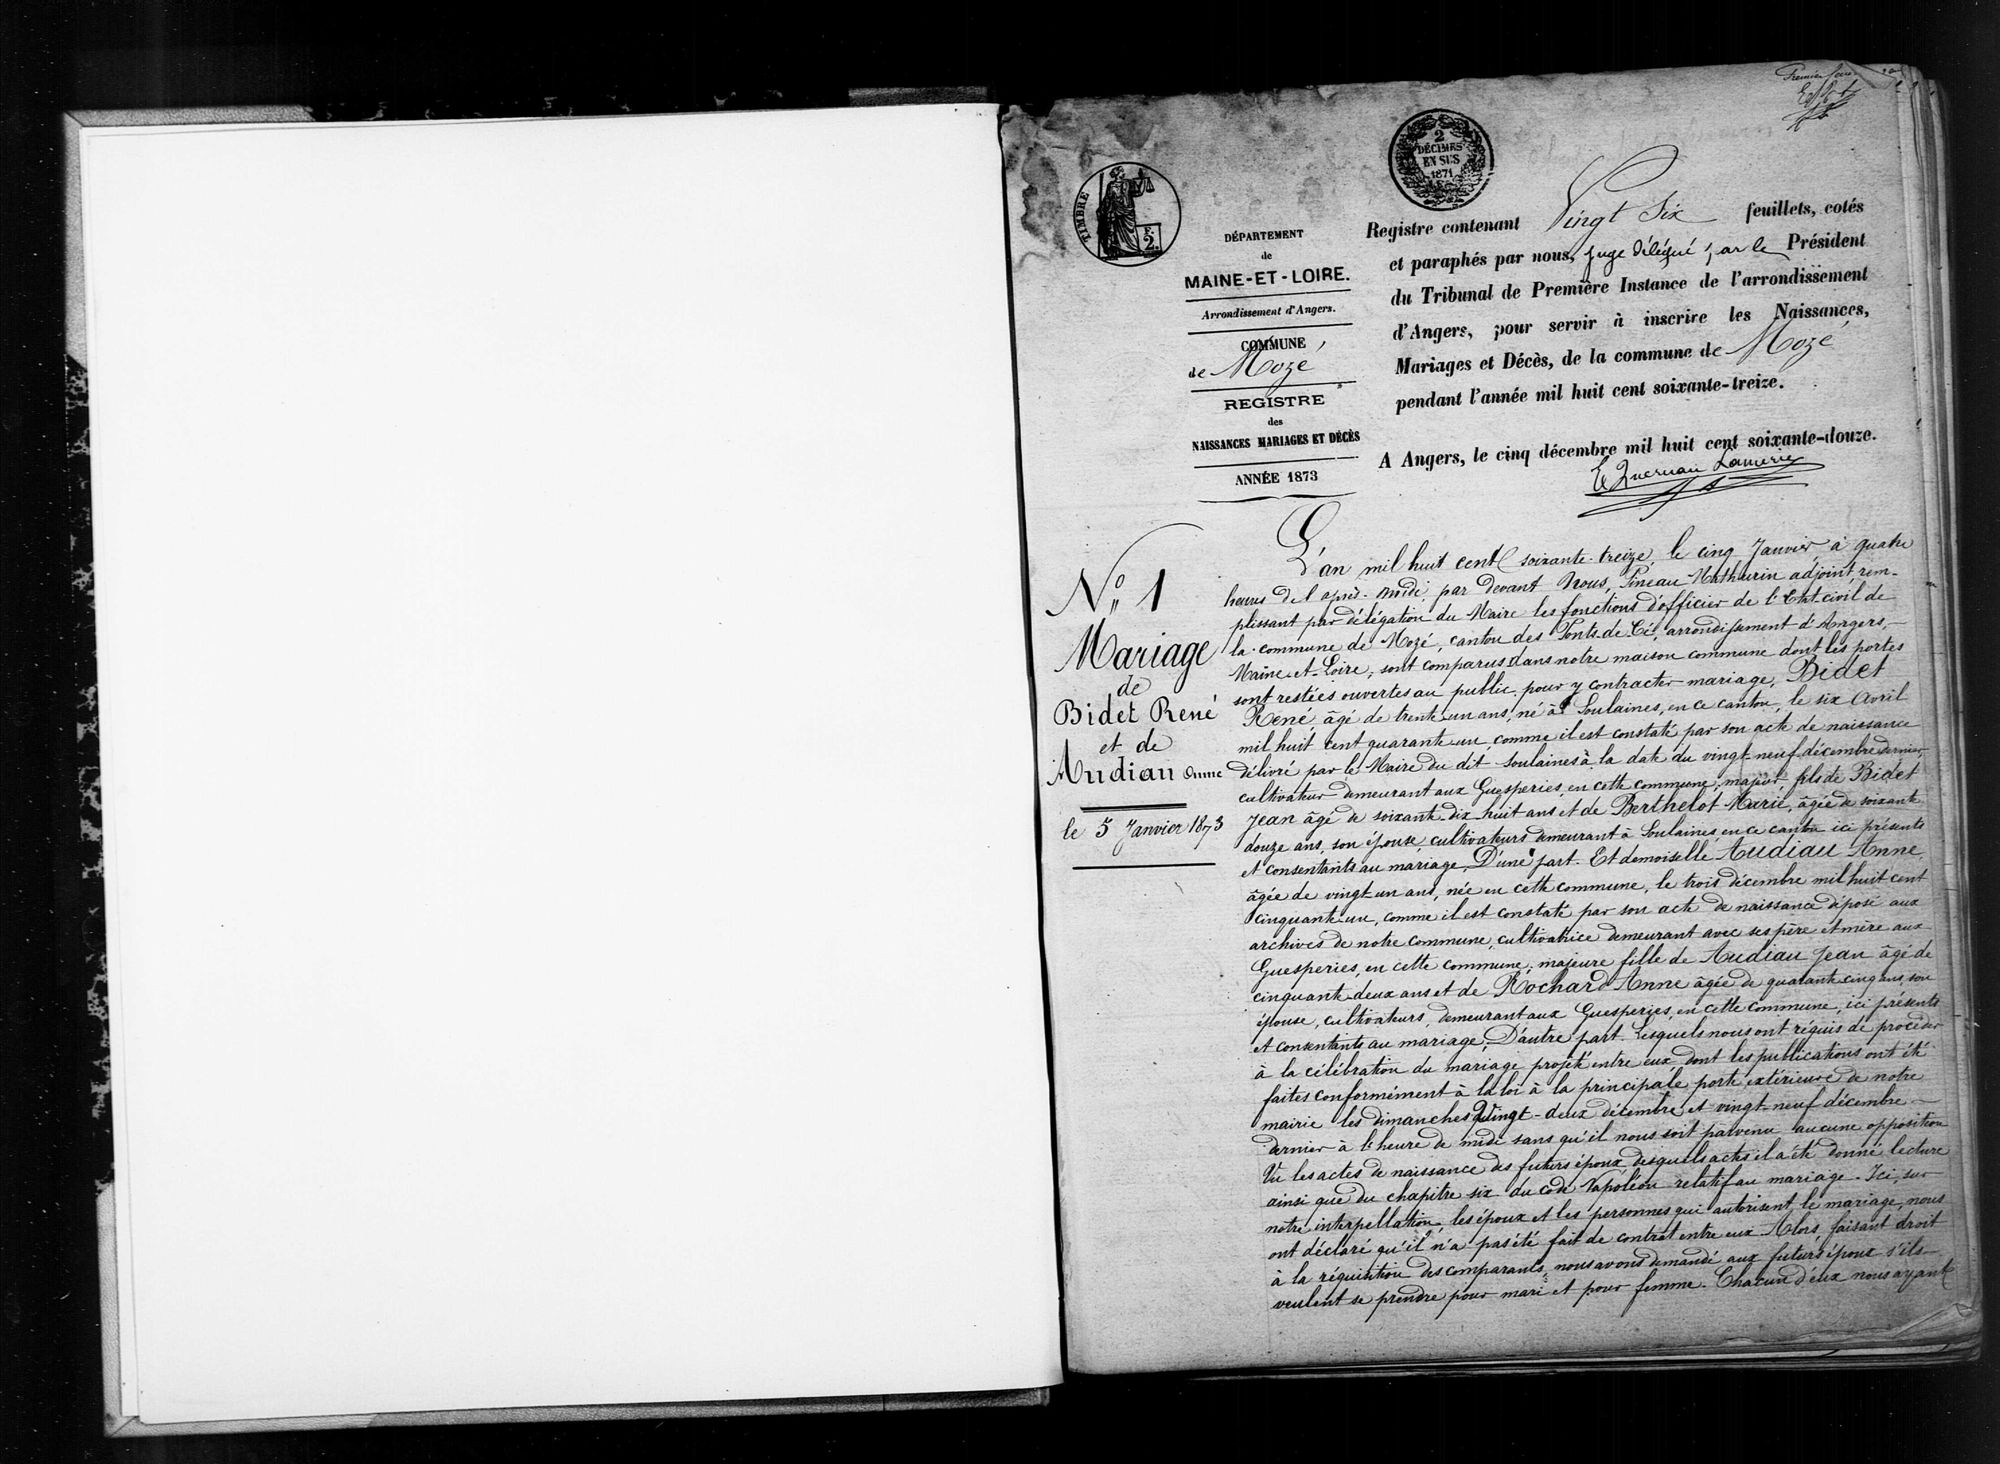 Premier
TIMBRE
F.
2.
2
DÉCIMES
EN SUS
1871
DÉPARTEMENT
de
MAINE-ET-LOIRE.
Arrondissement d'Angers.
COMMUNE
de Mozé
REGISTRE
des
NAISSANCES MARIAGES ET DÉCÈS
ANNÉE 1873
Registre contenant Vingt Six feuillets, cotés
et paraphés par nous, juge délégué par le Président
du Tribunal de Première Instance de l'arrondissement
d'Angers, pour servir à inscrire les Naissances,
Mariages et Décès, de la commune de Mozé
pendant l'année mil huit cent soixante-treize.
A Angers, le cinq décembre mil huit cent soixante-douze.
No 1
Mariage
de
Bidet René
et de
Audiau Anne
le 5 Janvier 1873
L'an mil huit cent soixante-treize, le cinq Janvier, à quatre
heures de l'après-midi, par devant Nous, Pineau Mathurin adjoint, rem-
plissant par délégation du Maire les fonctions d'officier de l'Etat-civil de
la commune de Mozé, canton des Ponts-de-Cé, arrondissement d'Angers,
Maine-et-Loire, sont comparus dans notre maison commune dont les portes
sont restées ouvertes au public, pour y contracter mariage, Bidet
René, âgé de trente-un ans, né à Soulaines, en ce canton, le six Avril
mil huit cent quarante-un, comme il est constaté par son acte de naissance
délivré par le Maire du dit Soulaines à la date du vingt-neuf décembre dernier
cultivateur demeurant aux Guesperies, en cette commune, majeur, fils de Bidet
Jean âgé de soixante-dix-huit ans et de Berthelot Marie, âgée de soixante
douze ans, son épouse, cultivateurs demeurant à Soulaines, en ce canton ici présents
et consentants au mariage, D'une part. Et demoiselle Audiau Anne,
âgée de vingt-un ans, née en cette commune, le trois décembre mil huit cent
cinquante-un, comme il est constaté par son acte de naissance déposé aux
archives de notre commune, cultivatrice demeurant avec ses père et mère aux
Guesperies, en cette commune, majeure fille de Audiau Jean âgé de
cinquante-deux ans et de Rochard Anne âgée de quarante-cinq ans, son
épouse, cultivateurs, demeurant aux Guesperies, en cette commune, ici présents
et consentants au mariage, D'autre part. Lesquels nous ont réquis de procéder
à la célébration du mariage projeté entre eux, dont les publications ont été
faites conformément à la loi à la principale porte extérieure de notre
mairie les dimanches vingt-deux décembre et vingt-neuf décembre
dernier à l'heure de midi sans qu'il nous soit parvenu aucune opposition
Vu les actes de naissance des futurs époux, desquels actes il a été donné lecture
ainsi que du chapitre six du code Napoléon relatif au mariage. Ici, sur
notre interpellation, les époux et les personnes qui autorisent le mariage, nous
ont déclaré qu'il n'a pas été fait de contrat entre eux. Alors, faisant droit
à la réquisition des comparants, nous avons demandé aux futurs époux s'ils
veulent se prendre pour mari et pour femme. Chacun d'eux nous ayant